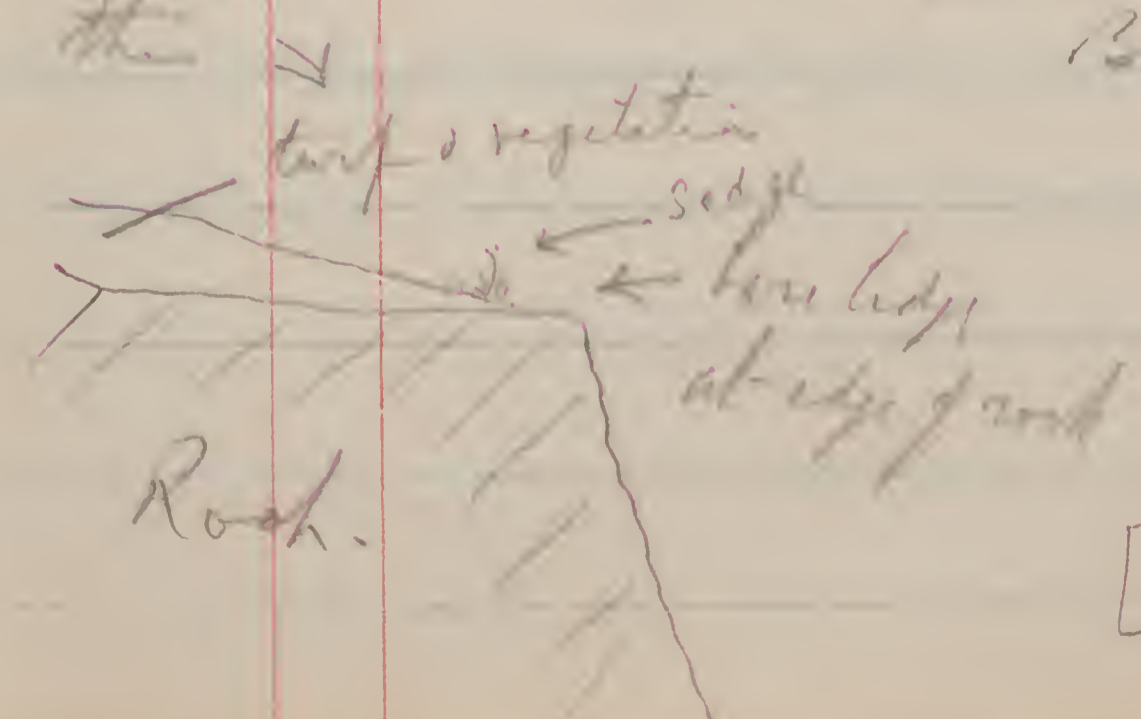 the
turf & vegetation
sedge
bare ledge
at edge of rock
Rock.